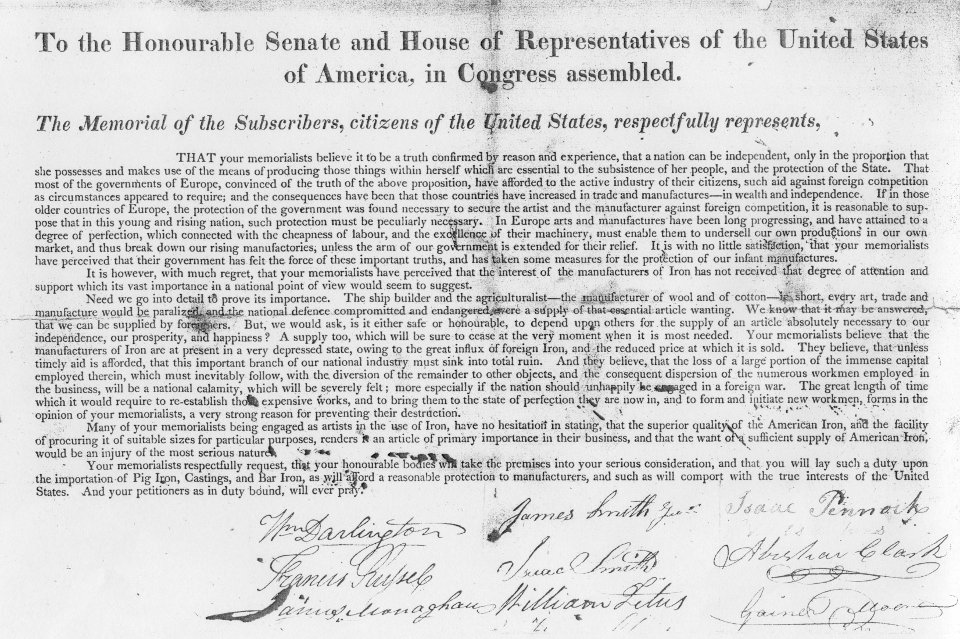 To the Honourable Senate and House of Representatives of the United States
of America, in Congress assembled.
The Memorial of the Subscribers, citizens of the United States, respectfully represents,
THAT your memorialists believe it to be a truth confirmed by reason and experience, that a nation can be independent, only in the proportion that
she possesses and makes use of the means of producing those things within herself which are essential to the subsistence of her people, and the protection of the State. That
most of the governments of Europe, convinced of the truth of the above proposition, have afforded to the active industry of their citizens, such aid against foreign competition
as circumstances appeared to require; and the consequences have been that those countries have increased in trade and manufactures—in wealth and independence. If in those
older countries of Europe, the protection of the government was found necessary to secure the artist and the manufacturer against foreign competition, it is reasonable to sup-
pose that in this young and rising nation, such protection must be peculiarly necessary. In Europe arts and manufactures have been long progressing, and have attained to a
degree of perfection, which connected with the cheapness of labour, and the excellence of their machinery, must enable them to undersell our own productions in our own
market, and thus break down our rising manufactories, unless the arm of our government is extended for their relief. It is with no little satisfaction, that your memorialists
have perceived that their government has felt the force of these important truths, and has taken some measures for the protection of our infant manufactures.
It is however, with much regret, that your memorialists have perceived that the interest of the manufacturers of Iron has not received that degree of attention and
support which its vast importance in a national point of view would seem to suggest.
Need we go into detail to prove its importance. The ship builder and the agriculturalist—the manufacturer of wool and of cotton—in short, every art, trade and
manufacture would be paralized, and the national defence compromitted and endangered, were a supply of that essential article wanting. We know that it may be answered,
that we can be supplied by foreigners. But, we would ask, is it either safe or honourable, to depend upon others for the supply of an article absolutely necessary to our
independence, our prosperity, and happiness? A supply too, which will be sure to cease at the very moment when it is most needed. Your memorialists believe that the
manufacturers of Iron are at present in a very depressed state, owing to the great influx of foreign Iron, and the reduced price at which it is sold. They believe, that unless
timely aid is afforded, that this important branch of our national industry must sink into total ruin. And they believe, that the loss of a large portion of the immense capital
employed therein, which must inevitably follow, with the diversion of the remainder to other objects, and the consequent dispersion of the numerous workmen employed in
the business, will be a national calamity, which will be severely felt; more especially if the nation should unhappily be engaged in a foreign war. The great length of time
which it would require to re-establish those expensive works, and to bring them to the state of perfection they are now in, and to form and initiate new workmen, forms in the
opinion of your memorialists, a very strong reason for preventing their destruction.
Many of your memorialists being engaged as artists in the use of Iron, have no hesitation in stating, that the superior quality of the American Iron, and the facility
of procuring it of suitable sizes for particular purposes, renders it an article of primary importance in their business, and that the want of a sufficient supply of American Iron,
would be an injury of the most serious nature.
Your memorialists respectfully request, that your honourable bodies will take the premises into your serious consideration, and that you will lay such a duty upon
the importation of Pig Iron, Castings, and Bar Iron, as will afford a reasonable protection to manufacturers, and such as will comport with the true interests of the United
States. And your petitioners as in duty bound, will ever pray.
Wm Darlington James Smith Jun. Isaac Pennock
Francis Russel Isaac Smith Abisha Clark
James Monaghan William Titus Moore